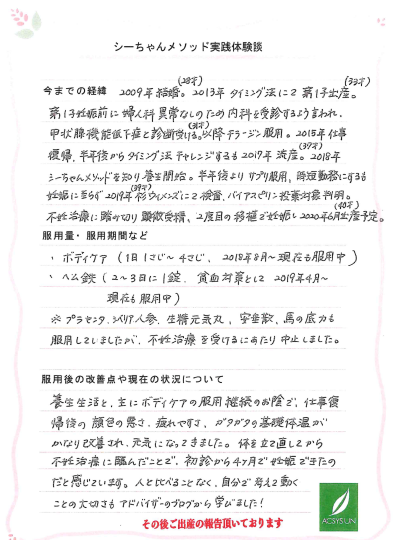 シーちゃんメソッド実践体験談
今までの経緯 2009年結婚。(28才) 2013年タイミング法にて第1子出産。(33才)
第1子妊娠前に婦人科異常なしのため内科を受診するよう言われ、
甲状腺機能低下症と診断受ける。(31才)以降チラージン服用。2015年仕事
復帰、半年後からタイミング法チャレンジするも2017年流産。(37才) 2018年
シーちゃんメソッドを知り養生開始。半年後よりサプリ服用、時短勤務にするも
妊娠に至らず2019年(39才)杉ウィメンズにて検査、バイアスピリン投薬対象判明。
不妊治療に踏み切り顕微受精、2度目の移植で妊娠し2020年6月出産予定。(40才)
服用量・服用期間など
・ボディケア(1日1さじ〜4さじ、2018年8月〜現在も服用中)
・ヘム鉄(2〜3日に1錠、貧血対策として 2019年4月〜
現在も服用中)
※プラセンタ、シベリア人参、生精元気丸、宝生散、馬の底力も
服用していましたが、不妊治療を受けるにあたり中止しました。
服用後の改善点や現在の状況について
養生生活と、主にボディケアの服用継続のお陰で、仕事復
帰後の顔色の悪さ、疲れやすさ、ガタガタの基礎体温が
かなり改善され、元気になってきました。体を立て直してから
不妊治療に臨んだことで、初診から4ヶ月で妊娠できたの
だと感じています。人と比べることなく、自分で考え動く
ことの大切さもアドバイザーのブログから学びました!
その後ご出産の報告頂いております
ACSYSUNI